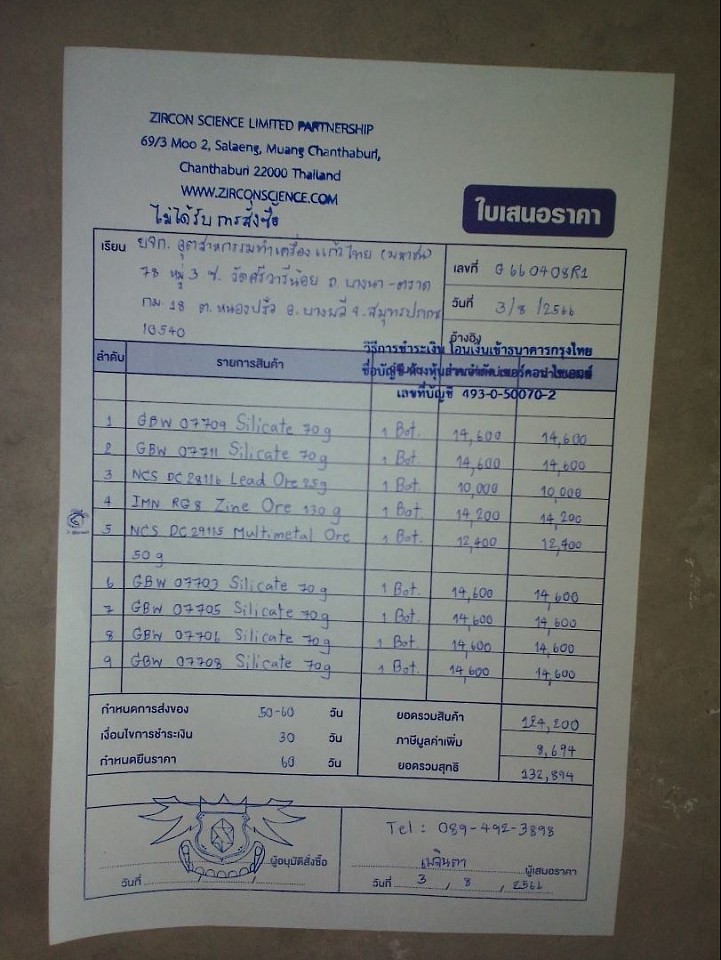 ZIRCON SCIENCE LIMITED PARTNERSHIP
69/3 Moo 2, Salaeng, Muang Chanthaburi,
Chanthaburi 22000 Thailand
WWW.ZIRCONSCIENCE.COM
ไม่ได้รับ การสั่งซื้อ
ใบเสนอราคา
เรียน บจก. อุตสาหกรรมทำเครื่องแก้วไทย (มหาชน)
78 หมู่ 3 ซ. วัดศรีวารีน้อย ถ. บางนา-ตราด
กม. 18 ต. หนองปรือ อ. บางพลี จ. สมุทรปราการ
10540
เลขที่ G660408R1
วันที่ 3/8/2566
อ้างอิง
วิธีการชำระเงิน โอนเงินเข้าธนาคารกรุงไทย
ลำดับ รายการสินค้า ชื่อบัญชี
เลขที่บัญชี 493-0-50070-2
1 GBW 07709 Silicate 70g 1 Bot. 14,600 14,600
2 GBW 07711 Silicate 70g 1 Bot. 14,600 14,600
3 NCS DC28116 Lead Ore 25g 1 Bot. 10,000 10,000
4 IMN RG8 Zinc Ore 130 g 1 Bot. 14,200 14,200
5 NCS DC29115 Multimetal Ore 1 Bot. 12,400 12,400
50 g
6 GBW 07703 Silicate 70g 1 Bot. 14,600 14,600
7 GBW 07705 Silicate 70g 1 Bot. 14,600 14,600
8 GBW 07706 Silicate 70g 1 Bot. 14,600 14,600
9 GBW 07708 Silicate 70g 1 Bot. 14,600 14,600
กำหนดการส่งของ 50-60 วัน ยอดรวมสินค้า 124,200
เงื่อนไขการชำระเงิน 30 วัน ภาษีมูลค่าเพิ่ม 8,694
กำหนดยืนราคา 60 วัน ยอดรวมสุทธิ 132,894
Tel : 089-492-3898
ผู้อนุมัติสั่งซื้อ
ผู้เสนอราคา
วันที่ / /
วันที่ 3 / 8 / 2566